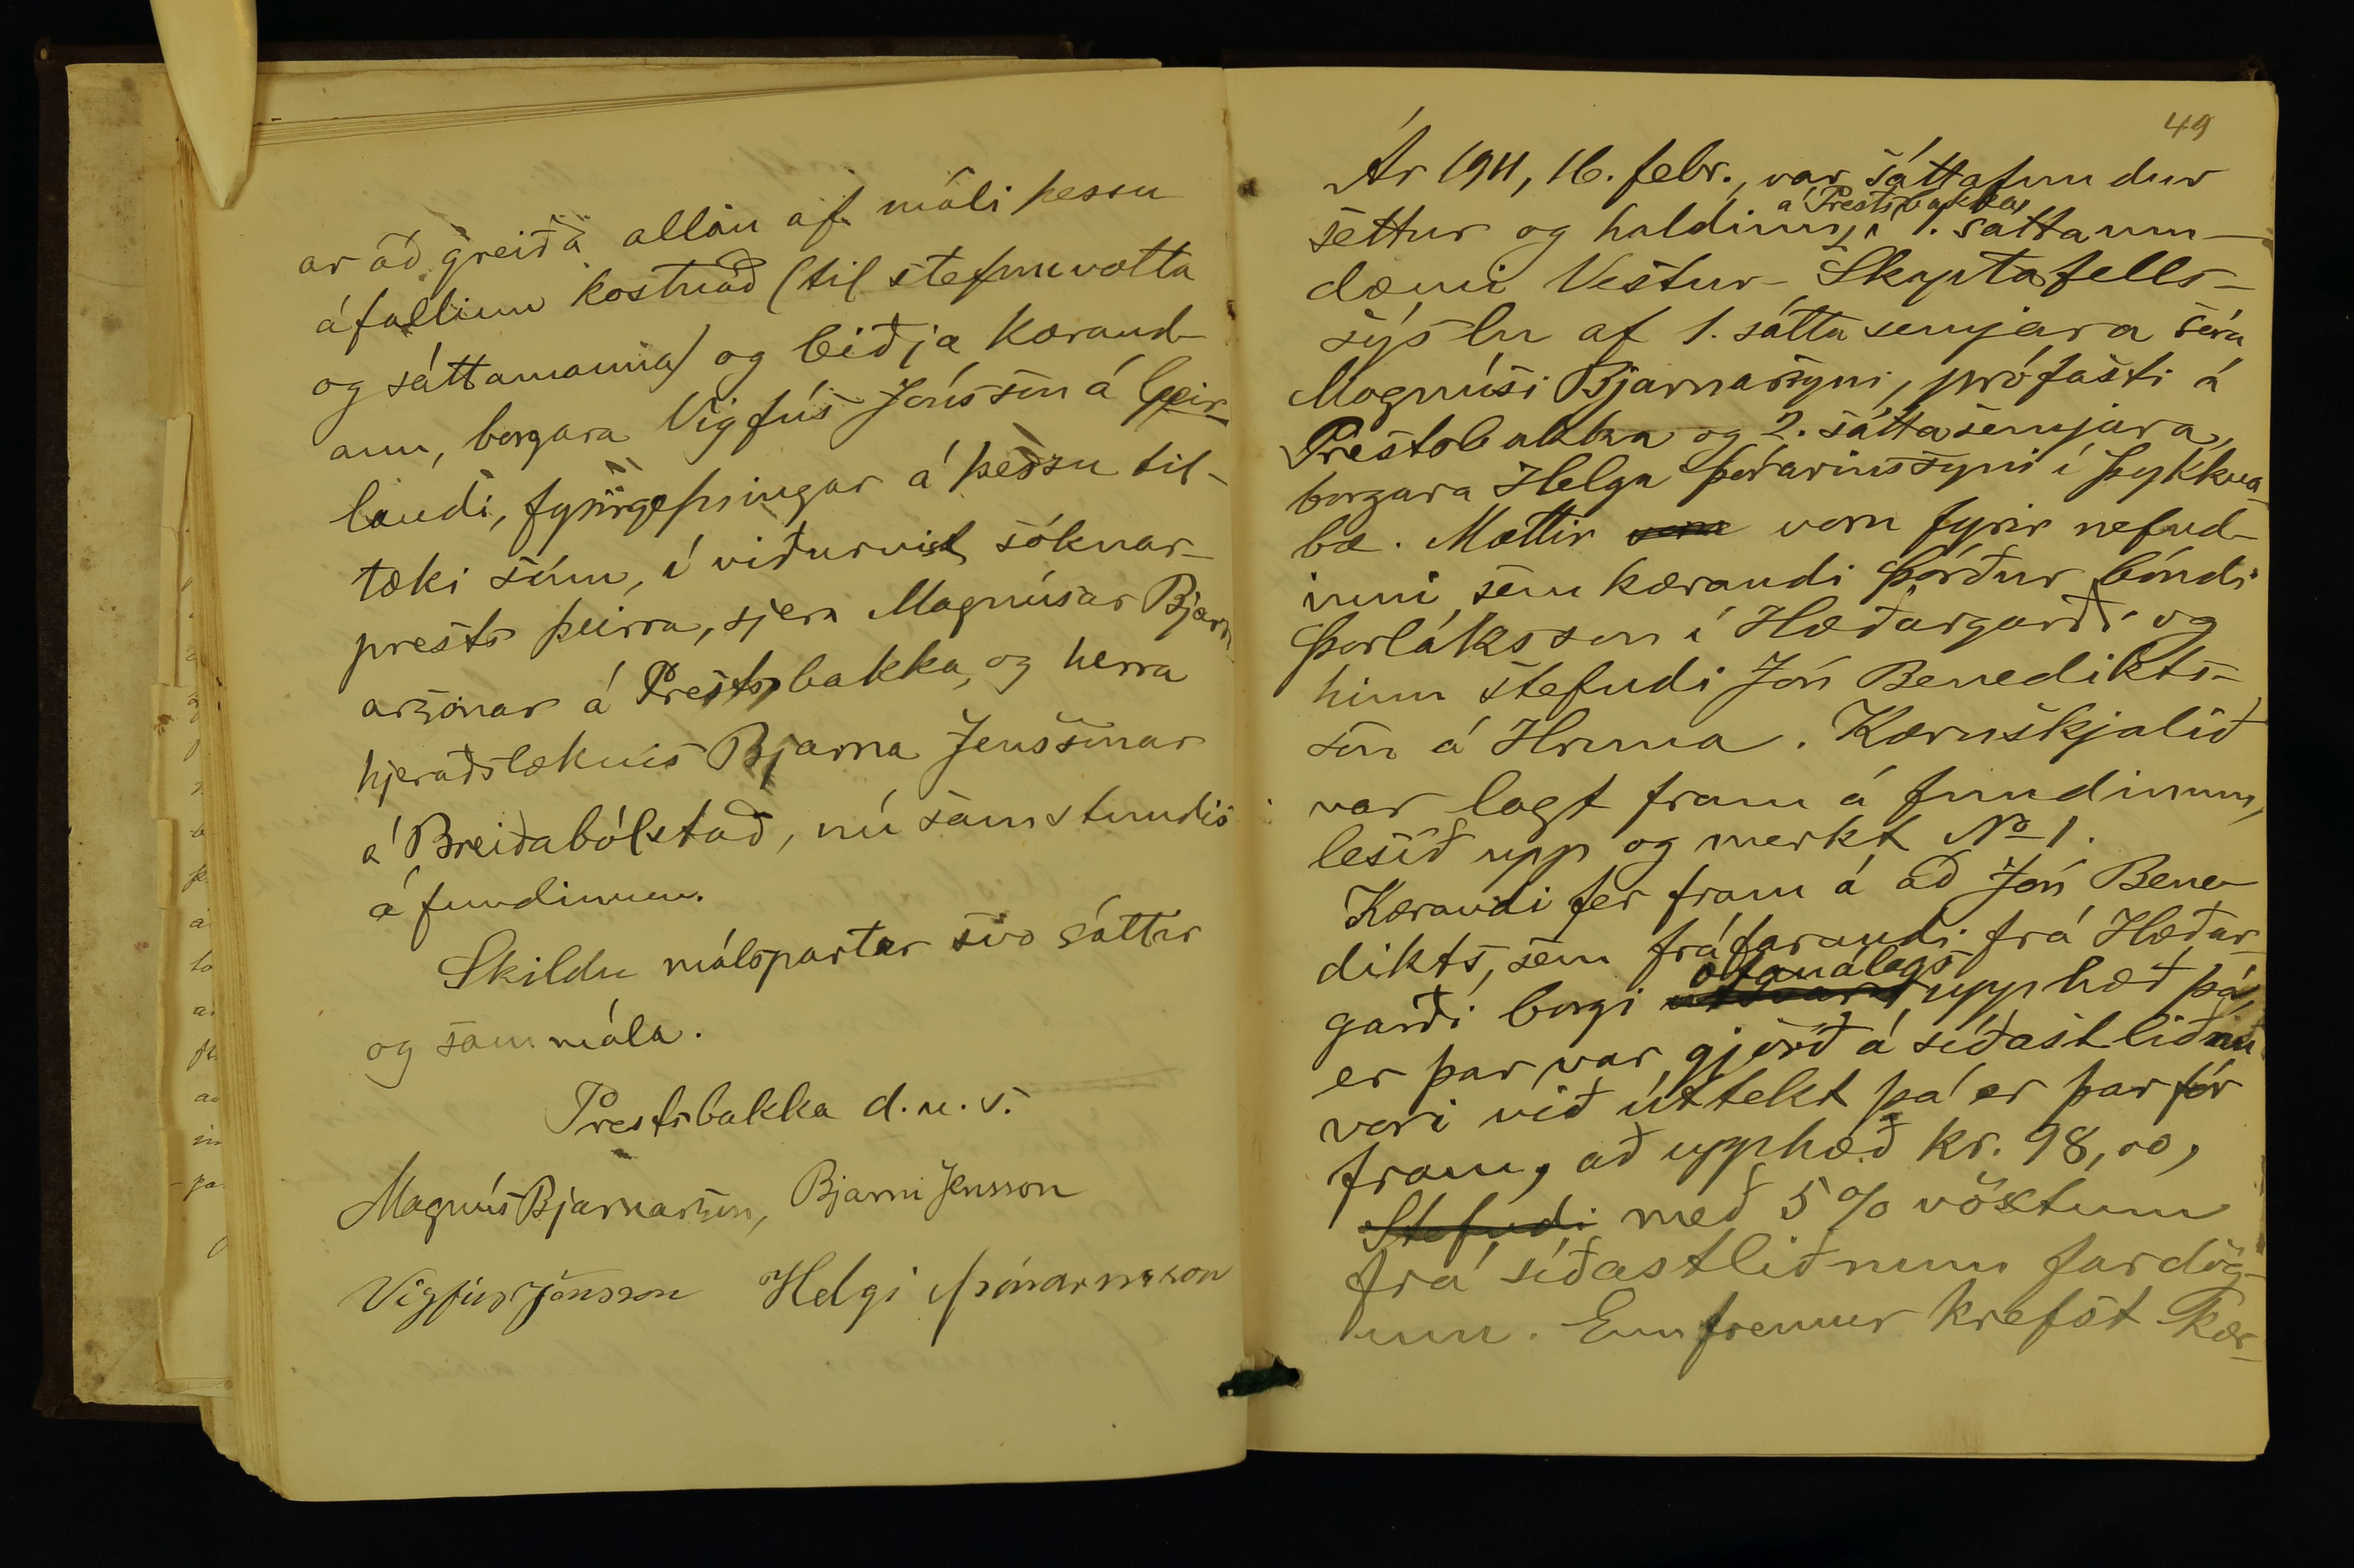 ar að greiða allan af máli þessu
áfallinn kostnað (til stefnuvotta
og sáttamanna) og biðja kærand-
ann, borgara Vigfús Jónsson á Geir-
landi, fyrirgefningar á þessu til-
tæki sínu, í viðurvist sóknar-
prests þeirra, sjera Magnúsar Bjarn
arsonar á Prestsbakka, og herra
hjeraðslæknis Bjarna Jenssonar
á Breiðabólstað, nú samstundis
á fundinum.
Skildu málspartar svo sáttir
og sammála.
Prestsbakka d. u. s.
Magnús Bjarnarson, Bjarni Jensson
Vigfús Jónsson Helgi Þórarinsson
49
Ár 1911, 16. febr., var sáttafundur
á Prestsbakka
settur og haldinn, í 1. sáttaum-
dæmi Vestur-Skaptafells-
sýslu af 1. sáttasemjara séra
Magnúsi Bjarnarsyni, prófasti á
Prestsbakka og 2. sáttasemjara,
borgara Helga Þórarinssyni í Þykkva-
bæ. Mættir voru fyrir nefnd-
inni sem kærandi Þórður bóndi
Þorláksson í Hæðargarði og
hinn stefndi Jón Benedikts-
son á Hruna. Kæruskjalið
var lagt fram á fundinum,
lesið upp og merkt No 1.
Kærandi fer fram á að Jón Bene-
dikts, sem fráfarandi frá Hæðar-
ofanálags
garði borgi upphæð þá,
er þar var gjörð á síðastliðnu
vori við úttekt þá er þar fór
fram, að upphæð kr. 98,00,
Stefndi með 5% vöxtum
frá síðastliðnum fardög-
um. Ennfremur krefst kær-